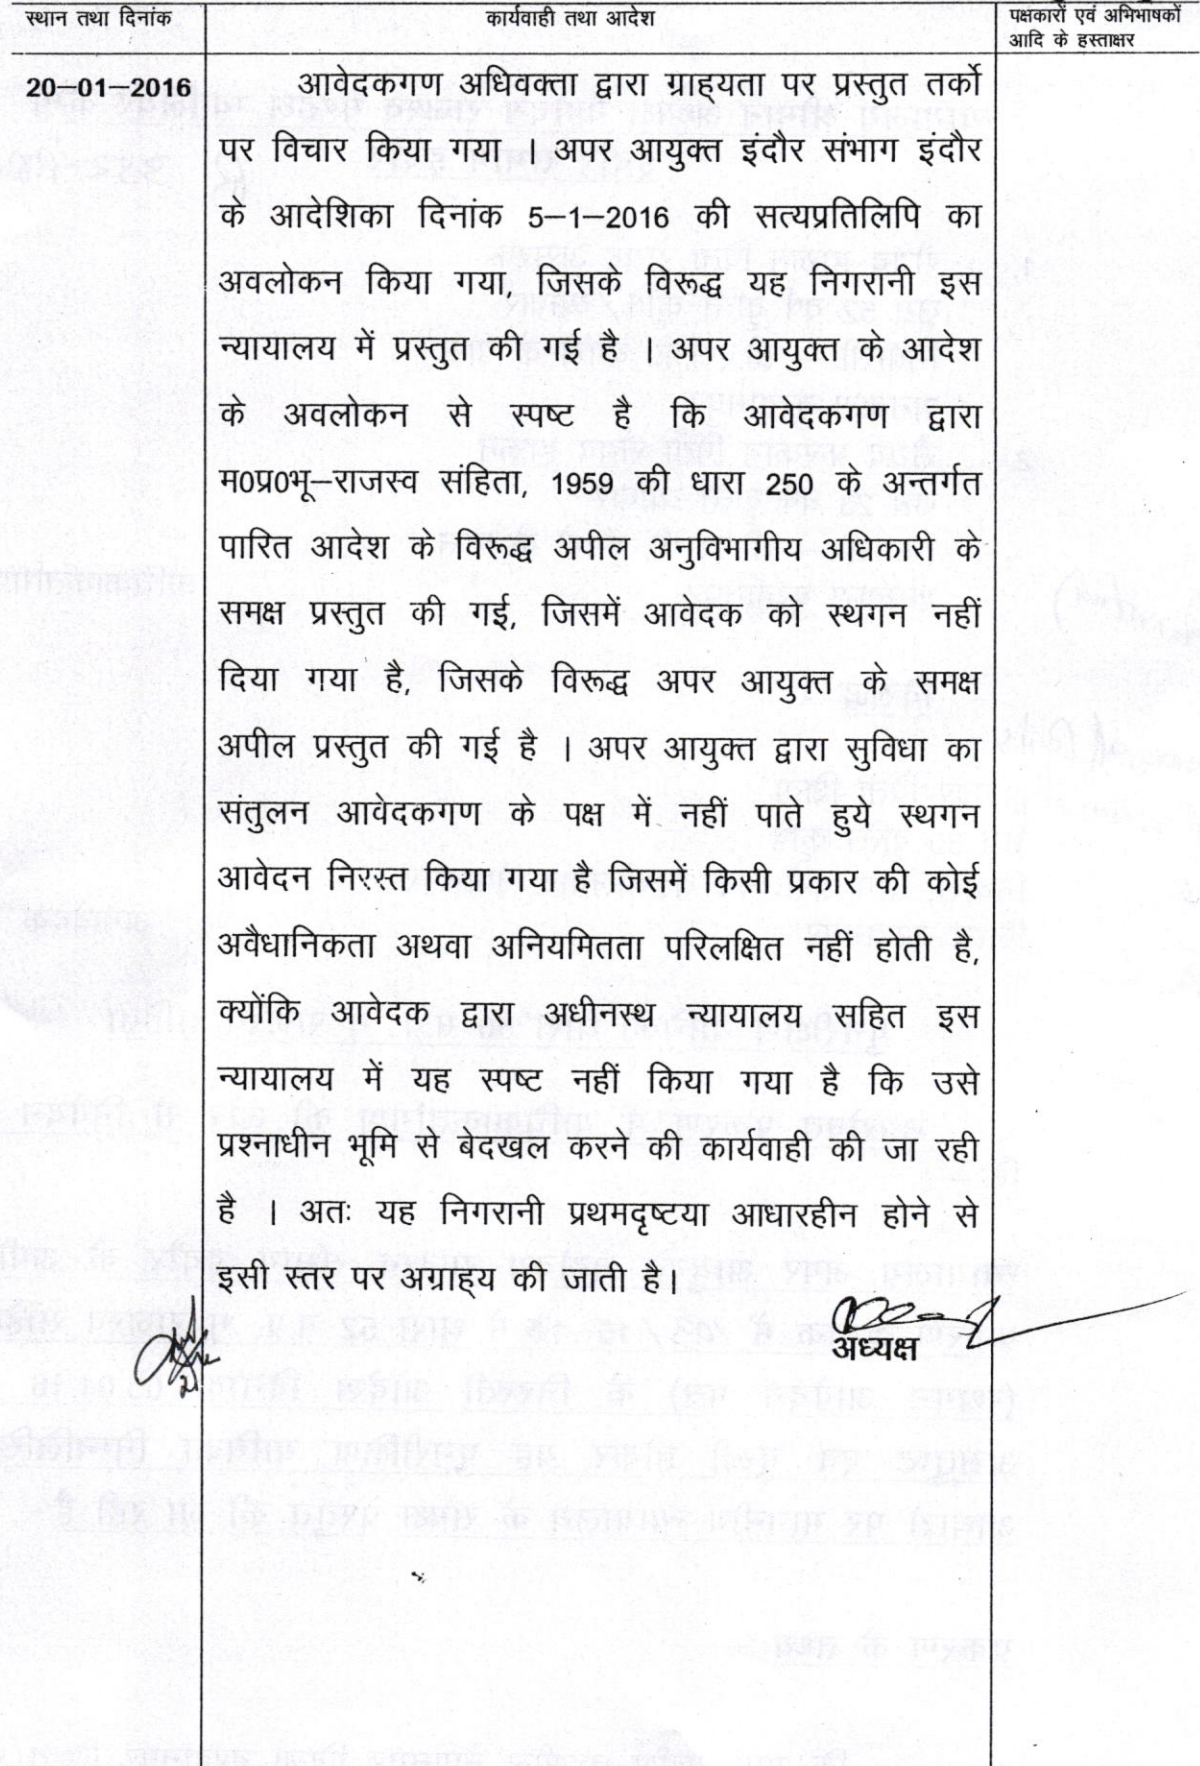 स्थान तथा दिनांक
कार्यवाही तथा आदेश
पक्षकारों एवं अभिभाषकों
आदि के हस्ताक्षर
20–01–2016
आवेदकगण अधिवक्ता द्वारा ग्राह्यता पर प्रस्तुत तर्को
पर विचार किया गया । अपर आयुक्त इंदौर संभाग इंदौर
के आदेशिका दिनांक 5–1–2016 की सत्यप्रतिलिपि का
अवलोकन किया गया, जिसके विरूद्ध यह निगरानी इस
न्यायालय में प्रस्तुत की गई है । अपर आयुक्त के आदेश
के अवलोकन से स्पष्ट है कि आवेदकगण द्वारा
म0प्र0भू–राजस्व संहिता, 1959 की धारा 250 के अन्तर्गत
पारित आदेश के विरूद्ध अपील अनुविभागीय अधिकारी के
समक्ष प्रस्तुत की गई, जिसमें आवेदक को स्थगन नहीं
दिया गया है, जिसके विरूद्ध अपर आयुक्त के समक्ष
अपील प्रस्तुत की गई है । अपर आयुक्त द्वारा सुविधा का
संतुलन आवेदकगण के पक्ष में नहीं पाते हुये स्थगन
आवेदन निरस्त किया गया है जिसमें किसी प्रकार की कोई
अवैधानिकता अथवा अनियमितता परिलक्षित नहीं होती है,
क्योंकि आवेदक द्वारा अधीनस्थ न्यायालय सहित इस
न्यायालय में यह स्पष्ट नहीं किया गया है कि उसे
प्रश्नाधीन भूमि से बेदखल करने की कार्यवाही की जा रही
है । अतः यह निगरानी प्रथमदृष्टया आधारहीन होने से
इसी स्तर पर अग्राह्य की जाती है।
अध्यक्ष